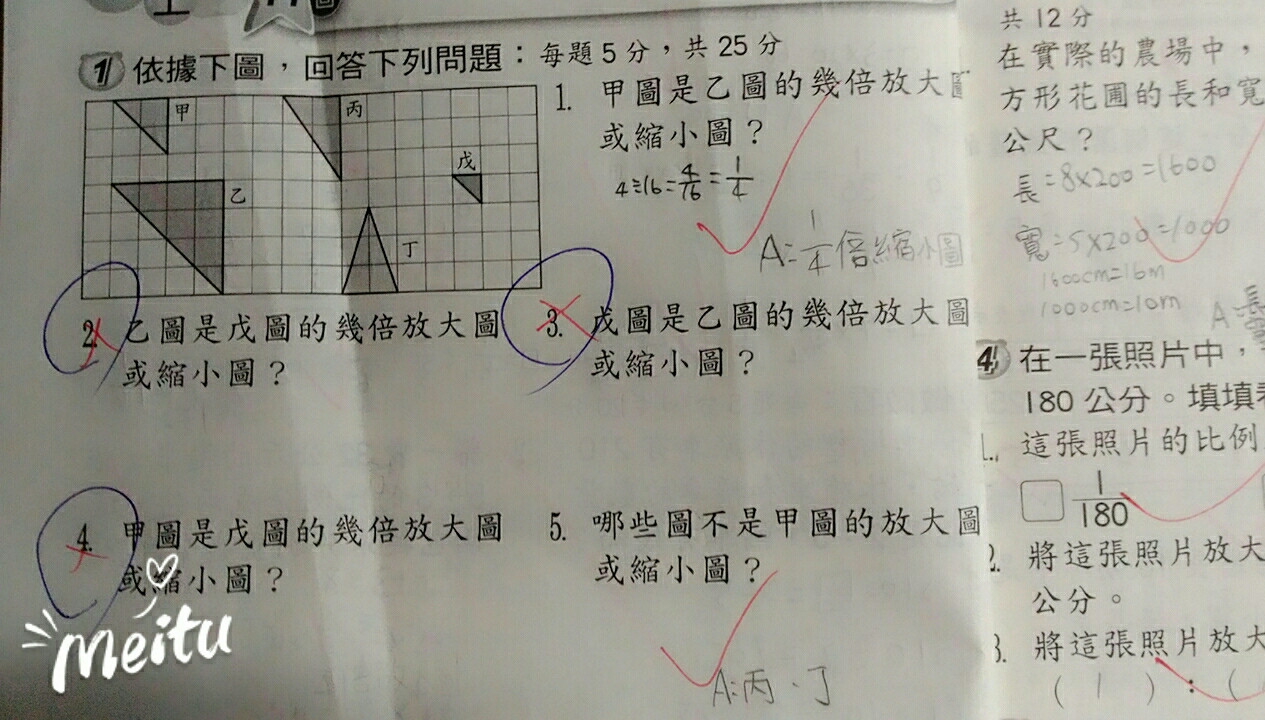 1 依據下圖，回答下列問題：每題5分，共25分
甲
丙
戊
乙
丁
1. 甲圖是乙圖的幾倍放大圖
或縮小圖？
4÷16=4/16=1/4
A=1/4倍縮小圖
2. 乙圖是戊圖的幾倍放大圖
或縮小圖？
3. 戊圖是乙圖的幾倍放大圖
或縮小圖？
4. 甲圖是戊圖的幾倍放大圖
或縮小圖？
5. 哪些圖不是甲圖的放大圖
或縮小圖？
A:丙、丁
meitu
共12分
在實際的農場中，
方形花圃的長和寬
公尺？
長=8×200=1600
寬=5×200=1000
1600cm=16m
1000cm=10m
A長
4 在一張照片中，
180公分。填填看
1. 這張照片的比例
□ 1/180
2. 將這張照片放大
公分。
3. 將這張照片放大
( 1 ) : (